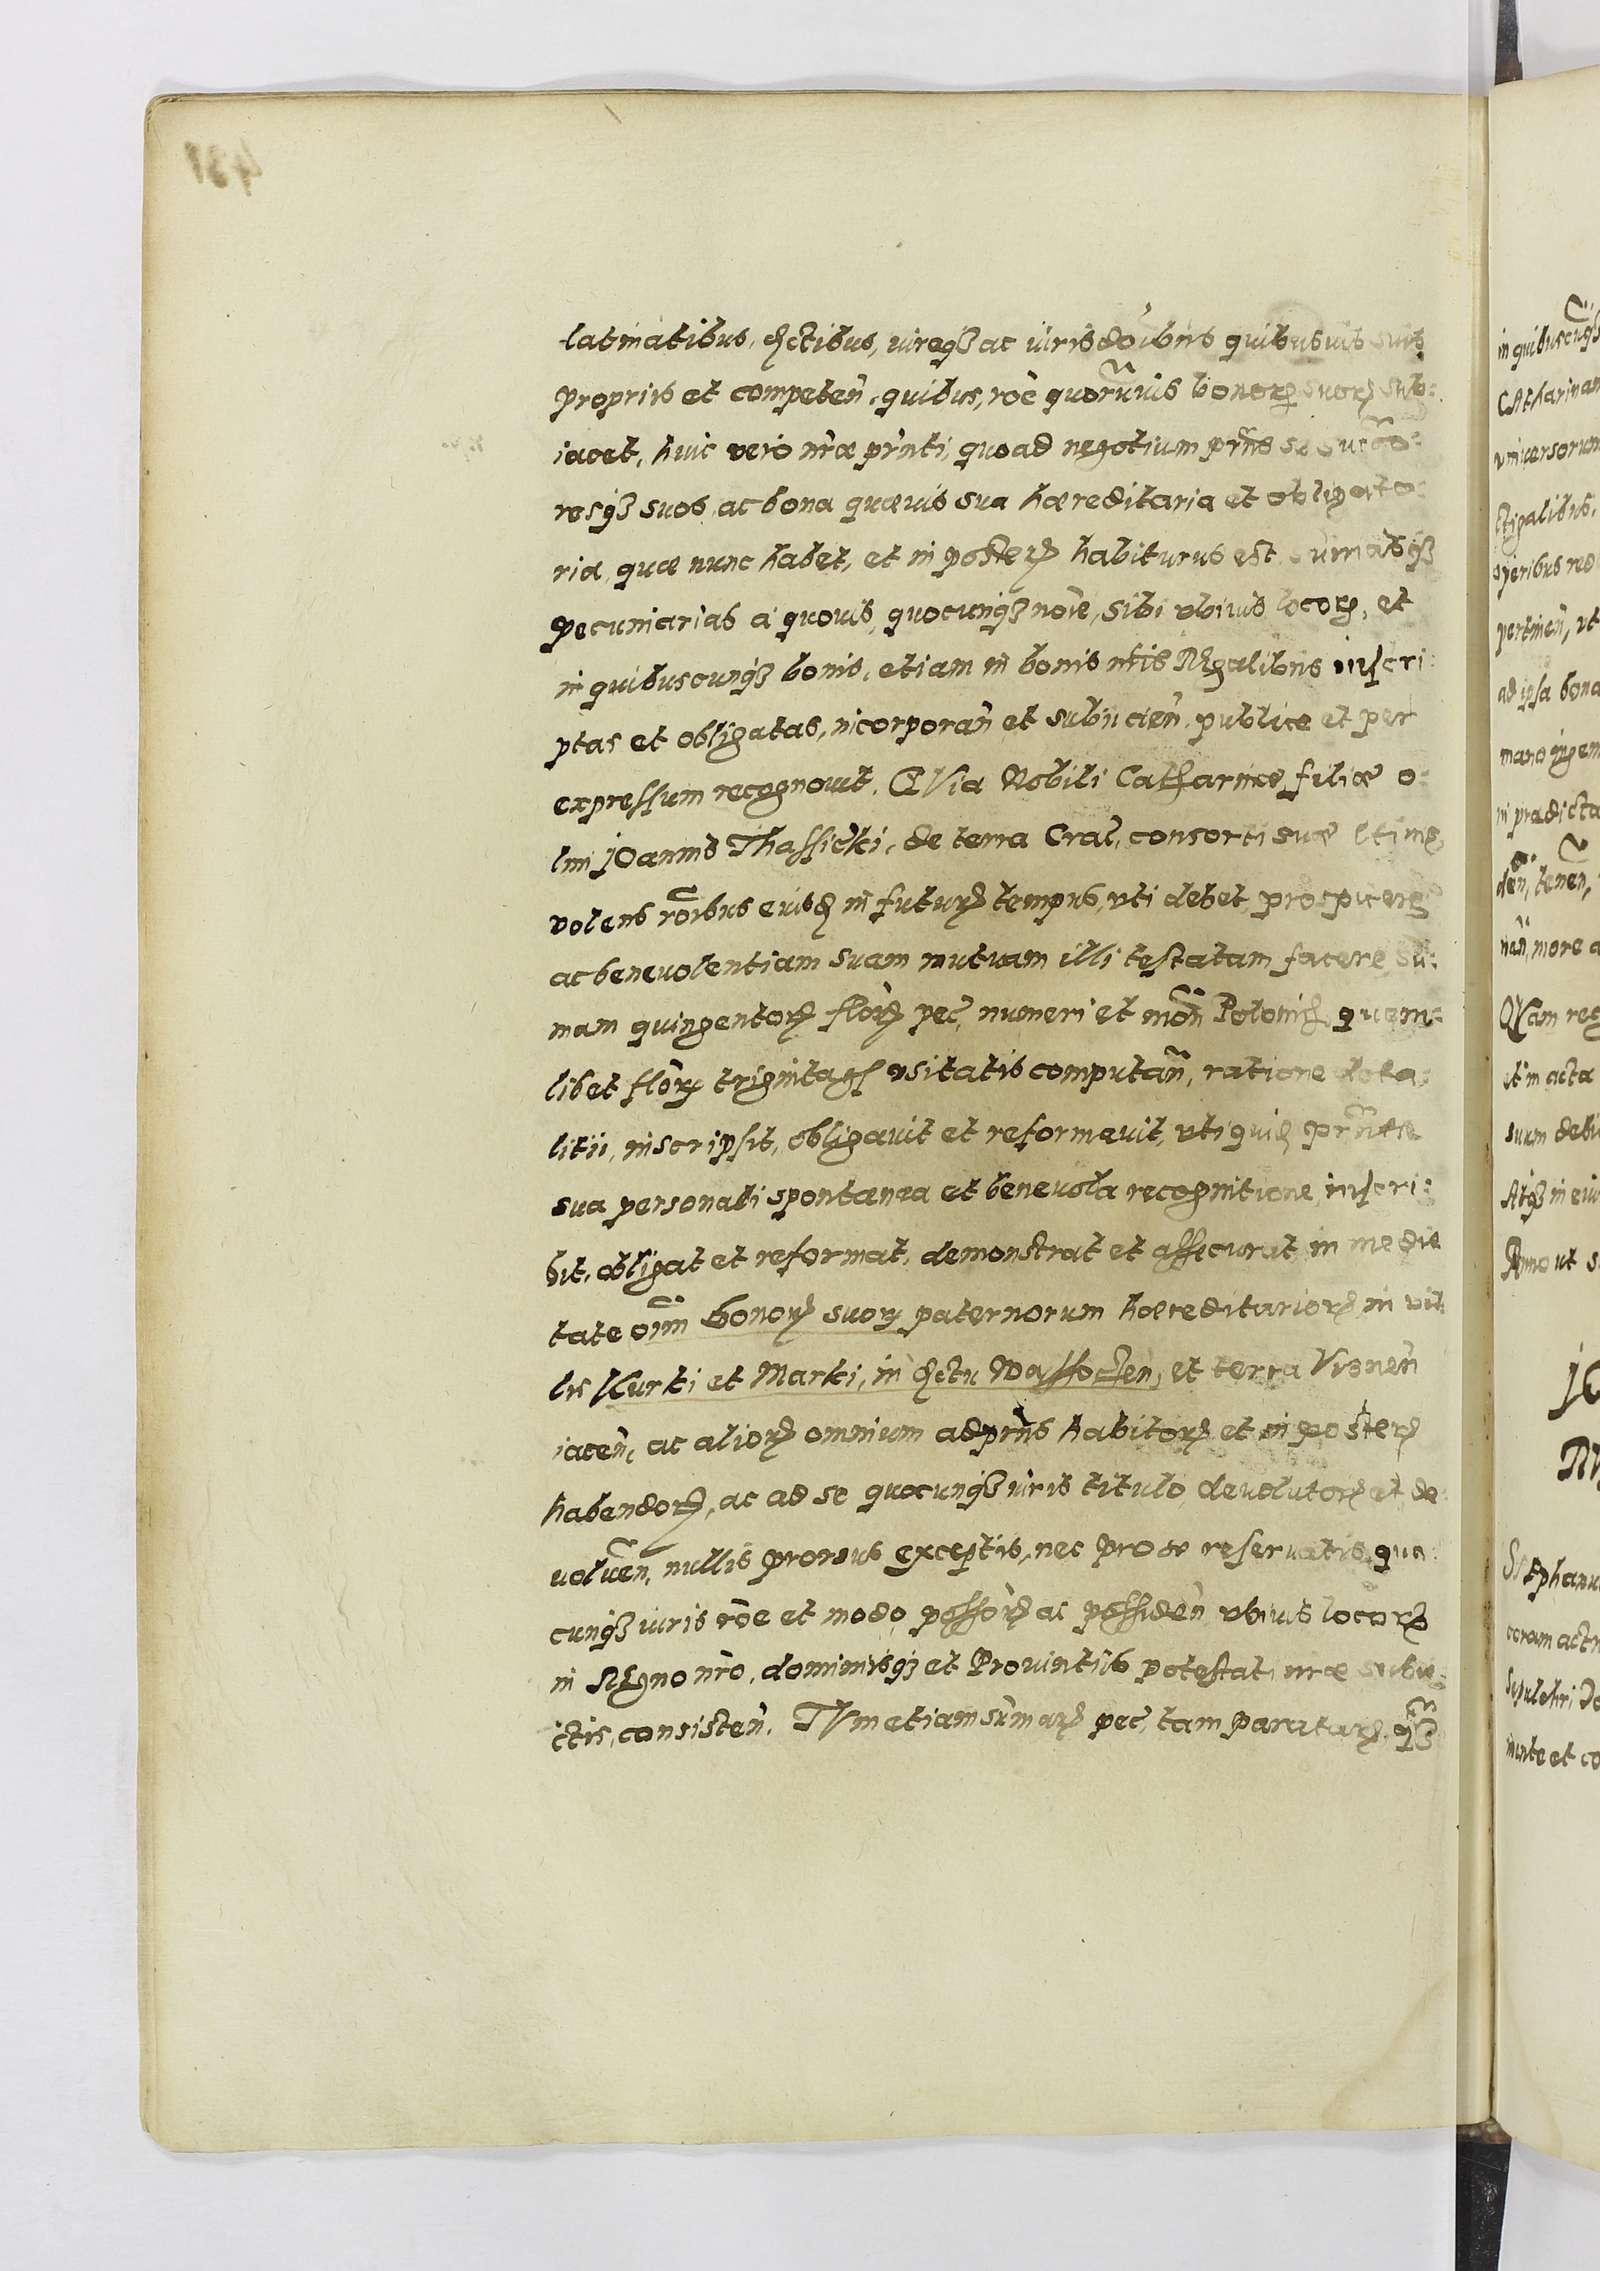 latinatibus, đctibus, iureqȝ ac iurisdōnibus quibusuis suis
proprijs et competeñ, quibus, rōe quorūuis bonorꝝ suorꝝ sub:
iacet, huic vero nr̄æ pr̄nti, quoad negotium pr̄ns se succo:
resqȝ suos, ac bona quæuis sua hæreditaria et obligato:
ria, quæ nunc habet, et in posterꝝ habiturus est, sum̄asqȝ
pecuniarias a quouis, quocunqȝ noīe, sibi vbiuis locorꝝ, et
in quibuscunqȝ bonis, etiam in bonis nr̄is REgalibus inscri:
ptas et obligatas, incorporañ et subijcieñ, publice et per
expressum recognouit. QVia Nobili Catharinæ filiæ o:
lim JOannis Thassicki, de terra Crac, consorti suæ ltimæ,
volens rōibus eiusđ in futurꝝ tempus, vti debet, prospicere
ac beneuolentiam suam mutuam illi testatam facere, su:
mam quingentorꝝ florꝝ pec, numeri et mon̄ Polonicꝝ, quem:
libet florꝝ triginta gſ vsitatis computañ, ratione dota:
litii, inscripsit, obligauit et reformauit, vti quiđ præsente
sua personali spontanea et beneuola recognitione, inscri:
bit, obligat et reformat, demonstrat et assecurat in medie
tate oīm bonorꝝ suorꝝ paternorum hæreditariorꝝ in vil:
lis Kurki et Marki, in đctu Wassoſſeñ, et terra Visneñ
iaceñ, ac aliorꝝ omnium ad pr̄ns habitorꝝ et in posterꝝ
habendorꝝ, ac ad se quocunqȝ iuris titulo, deuolutorꝝ et de:
voluen, nullis prorsus exceptis, nec pro se reseruatis, quo:
cunqȝ iuris rōe et modo, possorꝝ ac possideñ vbiuis locorꝝ
in REgno nr̄o, dominijsqȝ et Prouintijs potestati nr̄æ subie:
ctis, consisteñ. TVm etiam sum̄arꝝ pec, tam paratarꝝ, qȝ
in quibuscūqȝ
CAtharinam
vniuersorum
ctigalibus,
operibus red
pertineñ, vt
ad ipsa bona
mano ingen
in prædicta
deñ, teneñ,
neñ, more a
QVam rec
et in acta
suum debi
Atqȝ in eiu
Anno ut s
JO
Stephanu
coram act
Sepulchri Do
mente et co